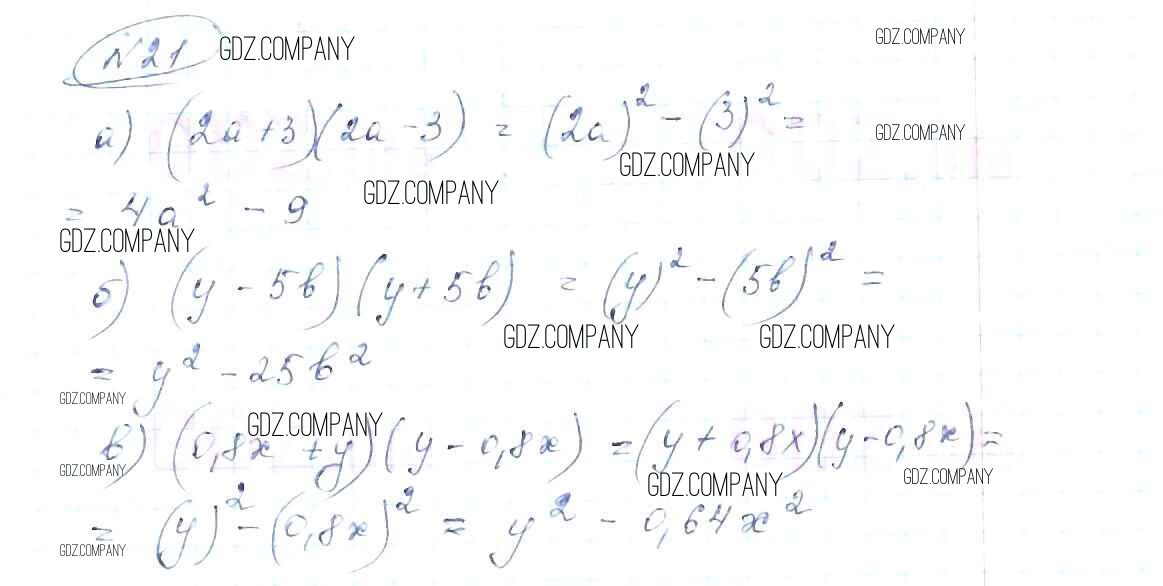 №21 GDZ.COMPANY GDZ.COMPANY
а) (2a+3)(2a-3) = (2a)² - (3)² = GDZ.COMPANY
GDZ.COMPANY GDZ.COMPANY
= 4a² - 9
GDZ.COMPANY
б) (y - 5b)(y + 5b) = (y)² - (5b)² =
GDZ.COMPANY GDZ.COMPANY
= y² - 25b²
GDZ.COMPANY GDZ.COMPANY
в) (0,8x + y)(y - 0,8x) = (y + 0,8x)(y - 0,8x) =
GDZ.COMPANY GDZ.COMPANY GDZ.COMPANY
= (y)² - (0,8x)² = y² - 0,64x²
GDZ.COMPANY